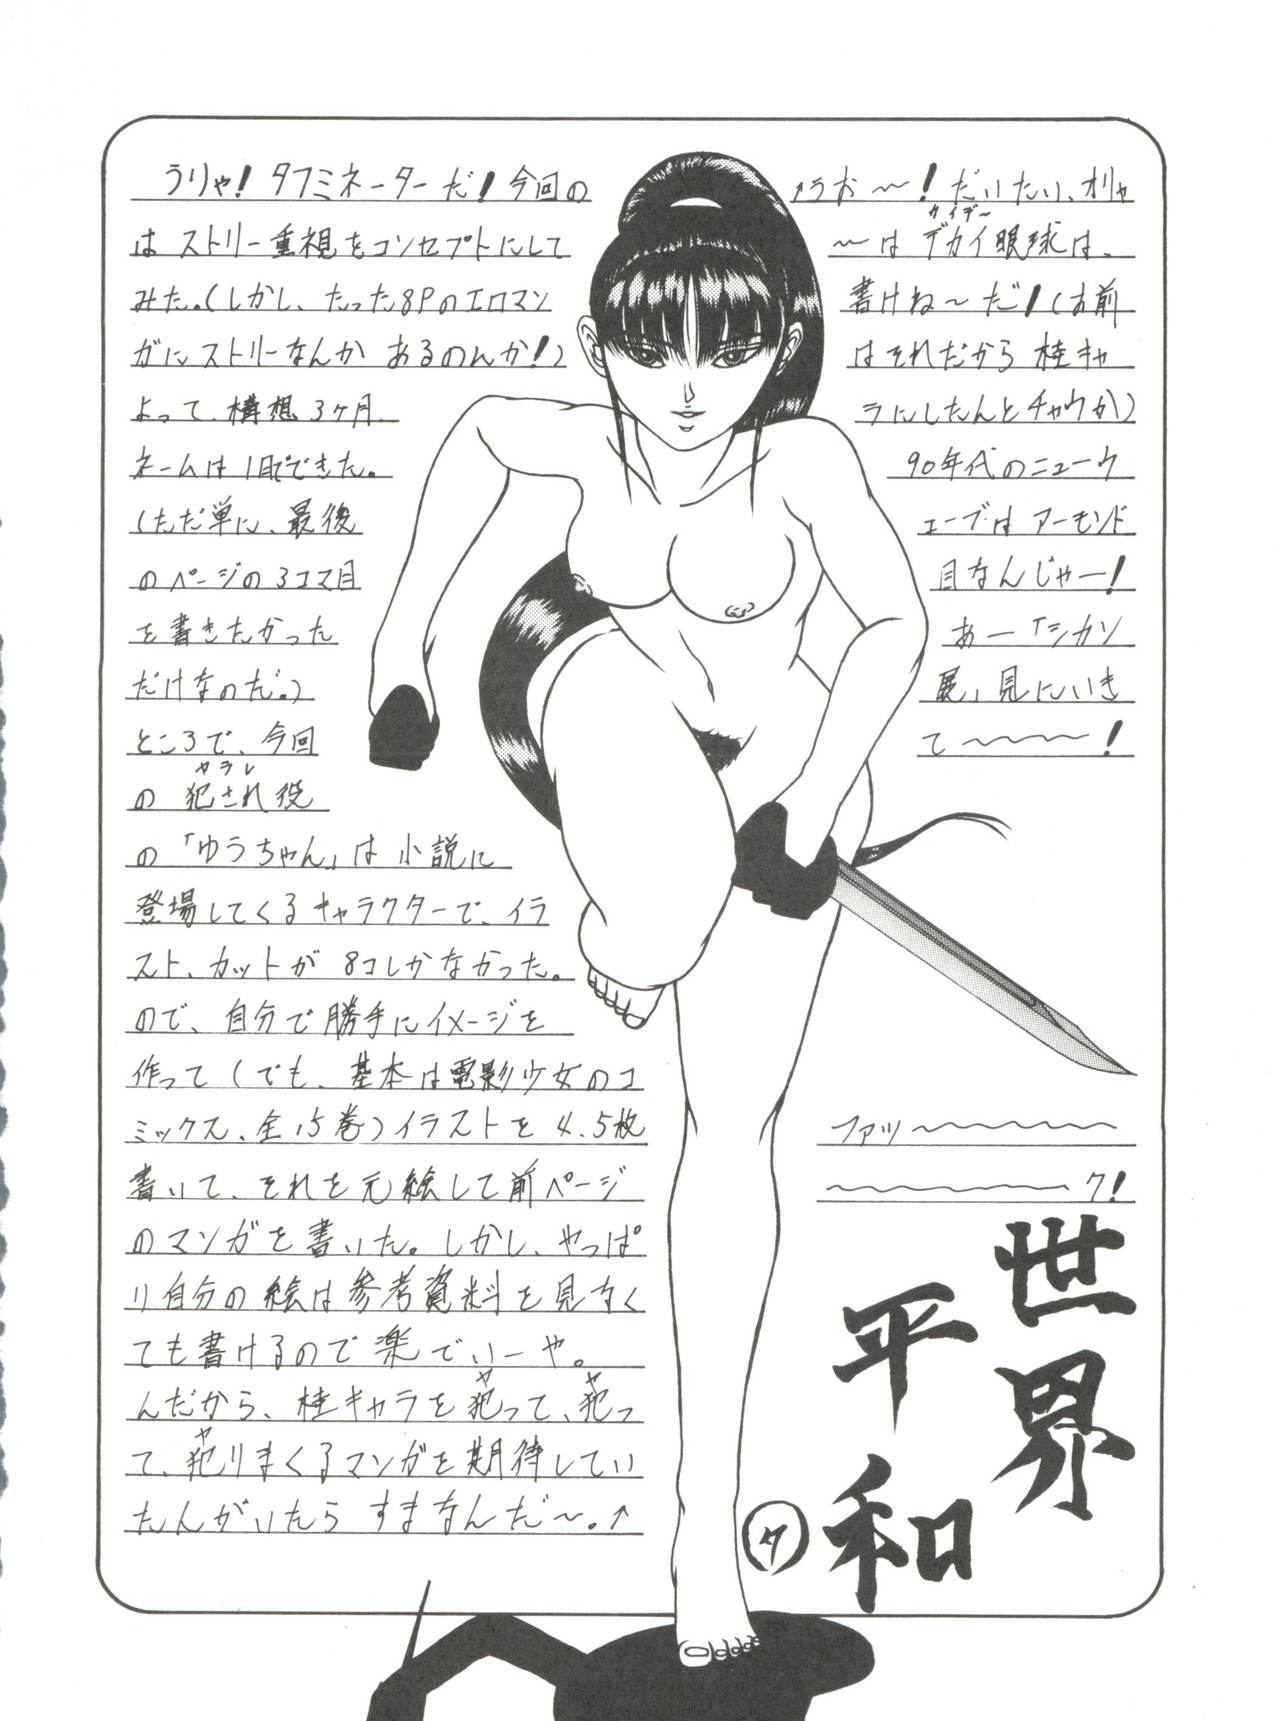 うりゃ！タフミネーターだ！今回の
はストリー重視をコンセプトにして
みた。(しかし、たった8Pのエロマン
ガにストリーなんかあるのんか！)
よって、構想3ヶ月、
ネームは1日でできた。
(ただ単に、最後
のページの3コマ目
を書きたかった
だけなのだ。)
ところで、今回
ヤラレ
の犯され役
の「ゆうちゃん」は小説に
登場してくるキャラクターで、イラ
スト、カットが8コしかなかった。
ので、自分で勝手にイメージを
作って(でも、基本は電影少女のコ
ミックス、全15巻)イラストを4、5枚
書いて、それを元絵して前ページ
のマンガを書いた。しかし、やっぱ
り自分の絵は参考資料を見なく
ても書けるので楽でいーや。
ヤ ヤ
んだから、桂キャラを犯って、犯っ
ヤ
て、犯りまくるマンガを期待してい
たんがいたらすまなんだ〜。↑
↑うお〜！だいたい、オリャ
〜はデカイ眼球は、
書けね〜だ！(お前
はそれだから桂キャ
ラにしたんとチャウか)
90年代のニューウ
ェーブはアーモンド
目なんじゃー！
あー「シカソ
展」見にいき
て〜〜〜〜！
ファッ〜〜〜〜〜〜
〜〜〜〜〜〜〜ク！
世界
平和
タ